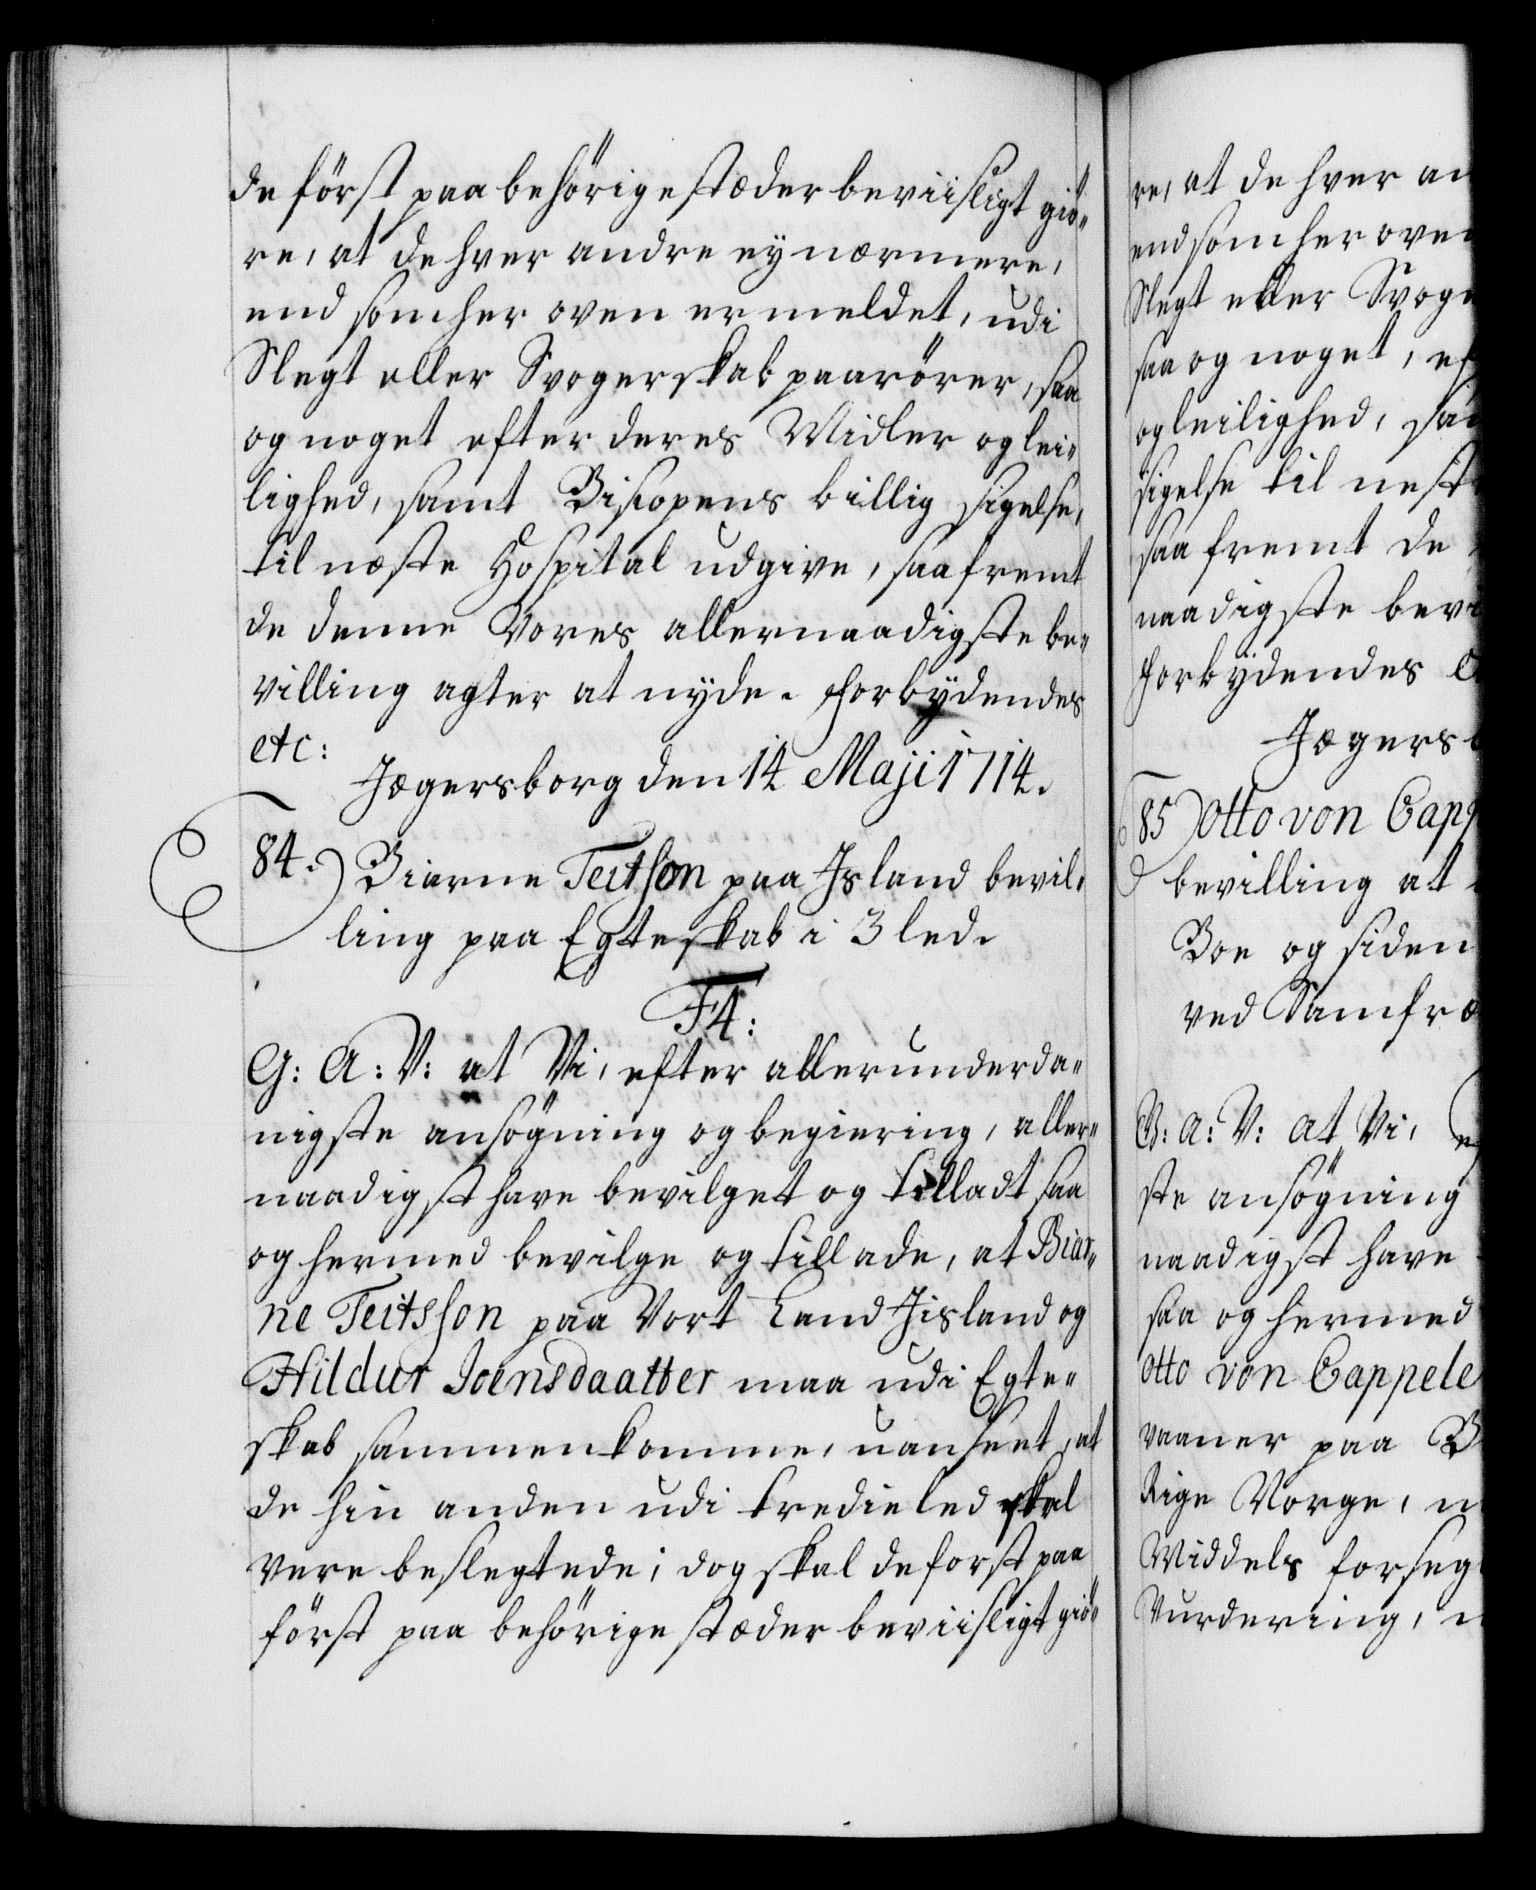 de först paa behörige stæder beviisligt giö-
re, at de hver andre ey nærmere,
end som her oven ermeldet, udi
Slegt eller Svogerskab paarörer, saa
og noget efter deres Midler og lei-
lighed, samt Biscopens billig sigelse,
til næste Hospital udgive, saafremt
de denne Vores allernaadigste be-
villing agter at nyde. forbydendes
etc:
Jægersborg den 14 Maji 1714.
84.) Biarne Teitson paa Island bevil-
ling paa Egteskab i 3 led.
F4:
G: A: V: at Vi, efter allerunderda-
nigste ansögning og begiering, aller-
naadigst have bevilget og tilladt saa
og hermed bevilge og tillade, at Biar-
ne Teitsson paa Vort Land Jisland og
Hildur Joensdaatter maa udi Egte-
skab sammenkomme, uanseet, at
de hin anden udi tredie led skal
være beslegtede; dog skal de forst paa
först paa behörige stæder beviisligt giö-
re, at de hver an
end som her oven
Slegt eller Svoge
saa og noget, ef
og leilighed, sam
sigelse til nest
saa fremt de
naadigste bevi
forbydendes
Jægersb
85) Otto von Capp
bevilling at
Boe og siden
ved Samfræ
G: A: V: at Vi, ef
ste ansögning
naadigst have
saa og hermed
Otto von Cappele
vaaner paa B
Rige Norge, u
Middels forseg
Vurdering, u